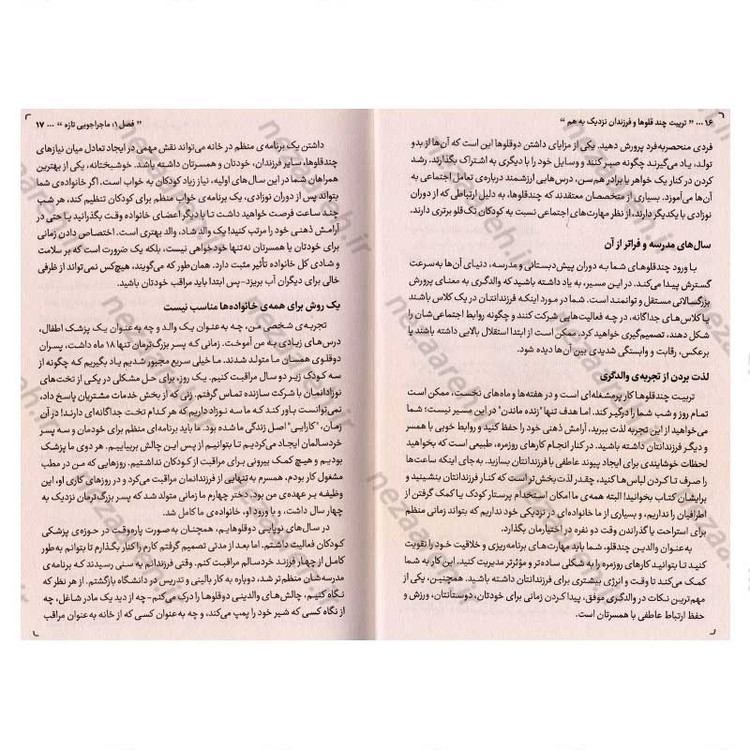 ۱۶ ... " تربیت چند قلوها و فرزندان نزدیک به هم "
فردی منحصربه‌فرد پرورش دهید. یکی از مزایای داشتن دوقلوها این است که آن‌ها از بدو
تولد، یاد می‌گیرند چگونه صبر کنند و وسایل خود را با دیگری به اشتراک بگذارند. رشد
کردن در کنار یک خواهر یا برادر هم‌سن، درس‌هایی ارزشمند درباره‌ی تعامل اجتماعی به
آن‌ها می‌آموزد. بسیاری از متخصصان معتقدند که چندقلوها، به دلیل ارتباطی که از دوران
نوزادی با یکدیگر دارند، از نظر مهارت‌های اجتماعی نسبت به کودکان تک‌قلو برتری دارند.
سال‌های مدرسه و فراتر از آن
با ورود چندقلوهای شما به دوران پیش‌دبستانی و مدرسه، دنیای آن‌ها به‌سرعت
گسترش پیدا می‌کند. در این مسیر، به یاد داشته باشید که والدگری به معنای پرورش
بزرگسالانی مستقل و توانمند است. شما در مورد اینکه فرزندانتان در یک کلاس باشند
یا کلاس‌های جداگانه، در چه فعالیت‌هایی شرکت کنند و چگونه روابط اجتماعی‌شان را
شکل دهند، تصمیم‌گیری خواهید کرد. ممکن است از ابتدا استقلال بالایی داشته باشند یا
برعکس، رقابت و وابستگی شدیدی بین آن‌ها دیده شود.
لذت بردن از تجربه‌ی والدگری
تربیت چندقلوها کار پرمشغله‌ای است و در هفته‌ها و ماه‌های نخست، ممکن است
تمام روز و شب شما را درگیر کند. اما هدف تنها "زنده ماندن" در این مسیر نیست؛ شما
می‌خواهید از این تجربه لذت ببرید، آرامش ذهنی خود را حفظ کنید و روابط خوبی با همسر
و دیگر فرزندانتان داشته باشید. در کنار انجام کارهای روزمره، طبیعی است که بخواهید
لحظات خوشایندی برای ایجاد پیوند عاطفی با فرزندانتان بسازید. به جای اینکه ساعت‌ها
را صرف تا کردن لباس‌ها کنید، چقدر لذت‌بخش‌تر است که کنار فرزندانتان بنشینید و
برایشان کتاب بخوانید! البته همه‌ی ما امکان استخدام پرستار کودک یا کمک گرفتن از
اطرافیان را نداریم، و بسیاری از ما خانواده‌ای در نزدیکی خود نداریم که بتواند زمانی منظم
برای استراحت یا گذراندن وقت دو نفره در اختیارمان بگذارد.
به‌عنوان والدین چندقلو، شما باید مهارت‌های برنامه‌ریزی و خلاقیت خود را تقویت
کنید تا بتوانید کارهای روزمره را به شکلی ساده‌تر و مؤثرتر مدیریت کنید. این کار به شما
کمک می‌کند تا وقت و انرژی بیشتری برای فرزندانتان داشته باشید. همچنین، یکی از
مهم‌ترین نکات در والدگری موفق، پیدا کردن زمانی برای خودتان، دوستانتان، ورزش و
حفظ ارتباط عاطفی با همسرتان است.
" فصل ۱: ماجراجویی تازه " ... ۱۷
داشتن یک برنامه‌ی منظم در خانه می‌تواند نقش مهمی در ایجاد تعادل میان نیازهای
چندقلوها، سایر فرزندان، خودتان و همسرتان داشته باشد. خوشبختانه، یکی از بهترین
همراهان شما در این سال‌های اولیه، نیاز زیاد کودکان به خواب است. اگر خانواده‌ی شما
بتواند پس از دوران نوزادی، یک برنامه‌ی خواب منظم برای کودکان تنظیم کند، هر شب
چند ساعت فرصت خواهید داشت تا با دیگر اعضای خانواده وقت بگذرانید یا حتی در
آرامش ذهنی خود را مرتب کنید! یک والد شاد، والد بهتری است. اختصاص دادن زمانی
برای خودتان یا همسرتان نه‌تنها خودخواهی نیست، بلکه یک ضرورت است که بر سلامت
و شادی کل خانواده تأثیر مثبت دارد. همان‌طور که می‌گویند، هیچ‌کس نمی‌تواند از ظرفی
خالی برای دیگران آب بریزد-پس ابتدا باید مراقب خودتان باشید.
یک روش برای همه‌ی خانواده‌ها مناسب نیست
تجربه‌ی شخصی من، چه به‌عنوان یک والد و چه به‌عنوان یک پزشک اطفال،
درس‌های زیادی به من آموخت. زمانی که پسر بزرگ‌ترمان تنها ۱۸ ماه داشت، پسران
دوقلوی همسان ما متولد شدند. ما خیلی سریع مجبور شدیم یاد بگیریم که چگونه از
سه کودک زیر دو سال مراقبت کنیم. یک روز، برای حل مشکلی در یکی از تخت‌های
نوزادانمان با شرکت سازنده تماس گرفتم. زنی که از بخش خدمات مشتریان پاسخ داد،
نمی‌توانست باور کند که ما سه نوزاد داریم که هر کدام تخت جداگانه‌ای دارند! در آن
زمان، "کارایی" اصل زندگی ما شده بود. ما باید برنامه‌ای منظم برای خودمان و سه پسر
خردسالمان ایجاد می‌کردیم تا بتوانیم از پس این چالش بربیاییم. هر دوی ما پزشک
بودیم و هیچ کمک بیرونی برای مراقبت از کودکان نداشتیم. روزهایی که من در مطب
مشغول کار بودم، همسرم به‌تنهایی از فرزندانمان مراقبت می‌کرد و در روزهای کاری او، این
وظیفه بر عهده‌ی من بود. دختر چهارم ما زمانی متولد شد که پسر بزرگ‌ترمان نزدیک به
چهار سال داشت، و با ورود او، خانواده‌ی ما کامل شد.
در سال‌های نوپایی دوقلوهایم، همچنان به‌صورت پاره‌وقت در حوزه‌ی پزشکی
کودکان فعالیت داشتم. اما بعد از مدتی تصمیم گرفتم کارم را کنار بگذارم تا بتوانم به‌طور
کامل از چهار فرزند خردسالم مراقبت کنم. وقتی فرزندانم به سنی رسیدند که برنامه‌ی
مدرسه‌شان منظم‌تر شد، دوباره به کار بالینی و تدریس در دانشگاه بازگشتم. از هر نظر که
نگاه کنیم، چالش‌های والدینی دوقلوها را درک می‌کنم-چه از دید یک مادر شاغل، چه
از نگاه کسی که شیر خود را پمپ می‌کند، و چه به‌عنوان کسی که از خانه به‌عنوان مراقب
nezaareh.ir